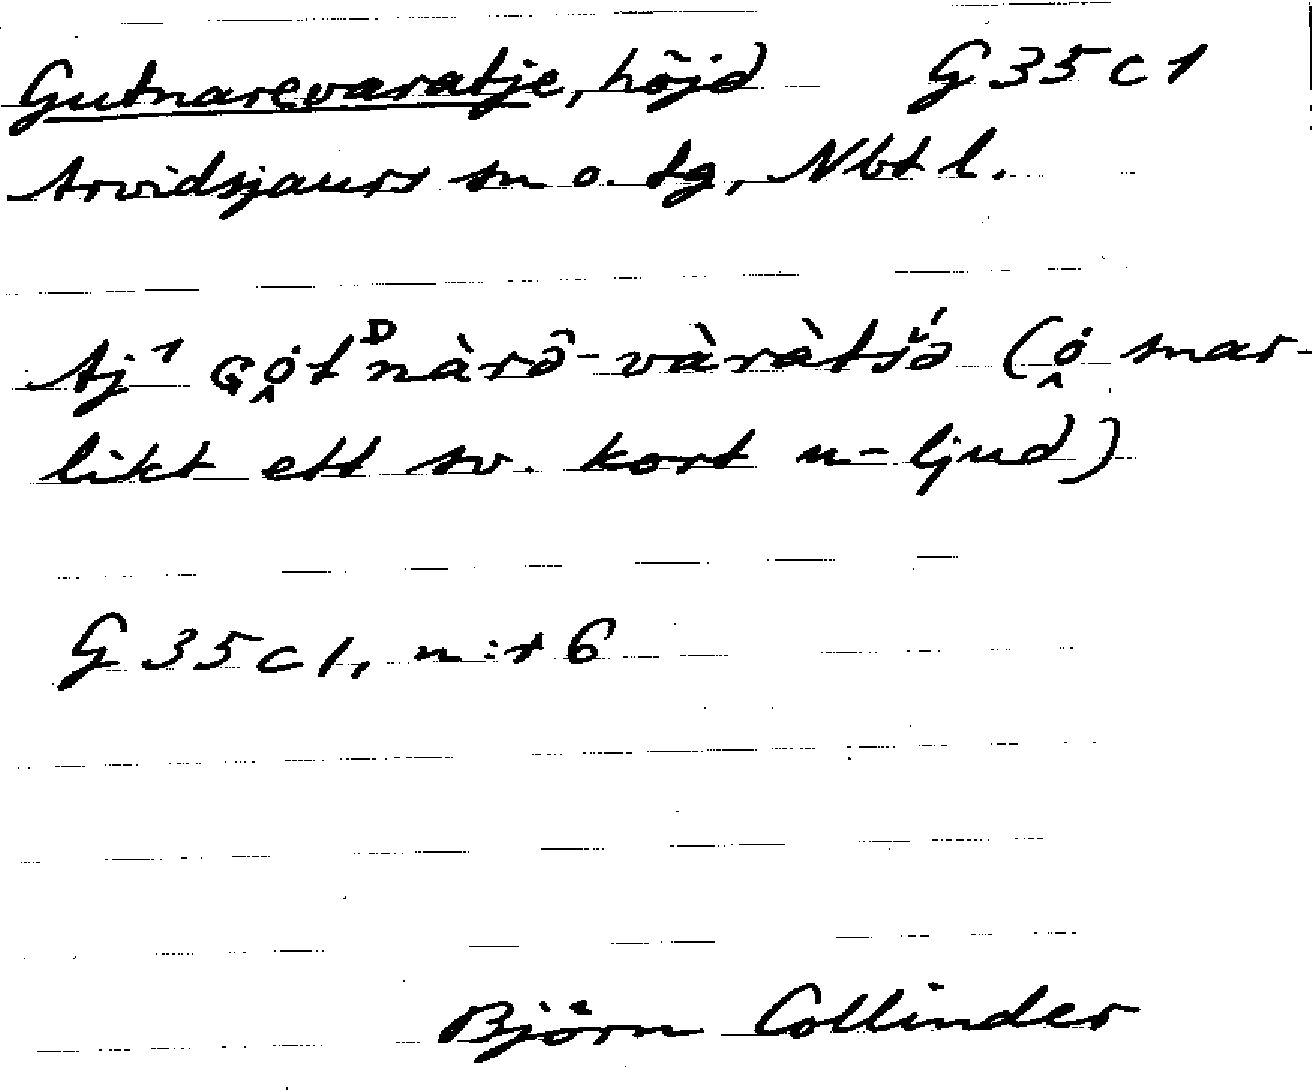 Gutnarevaratje, höjd G 35 c 1
Arvidsjaurs sn o. tg, Nbt l.
Aj¹ (ȯ snar-
likt ett sv. kort u-ljud)
G 35 c 1, n:r 6
Björn Collinder